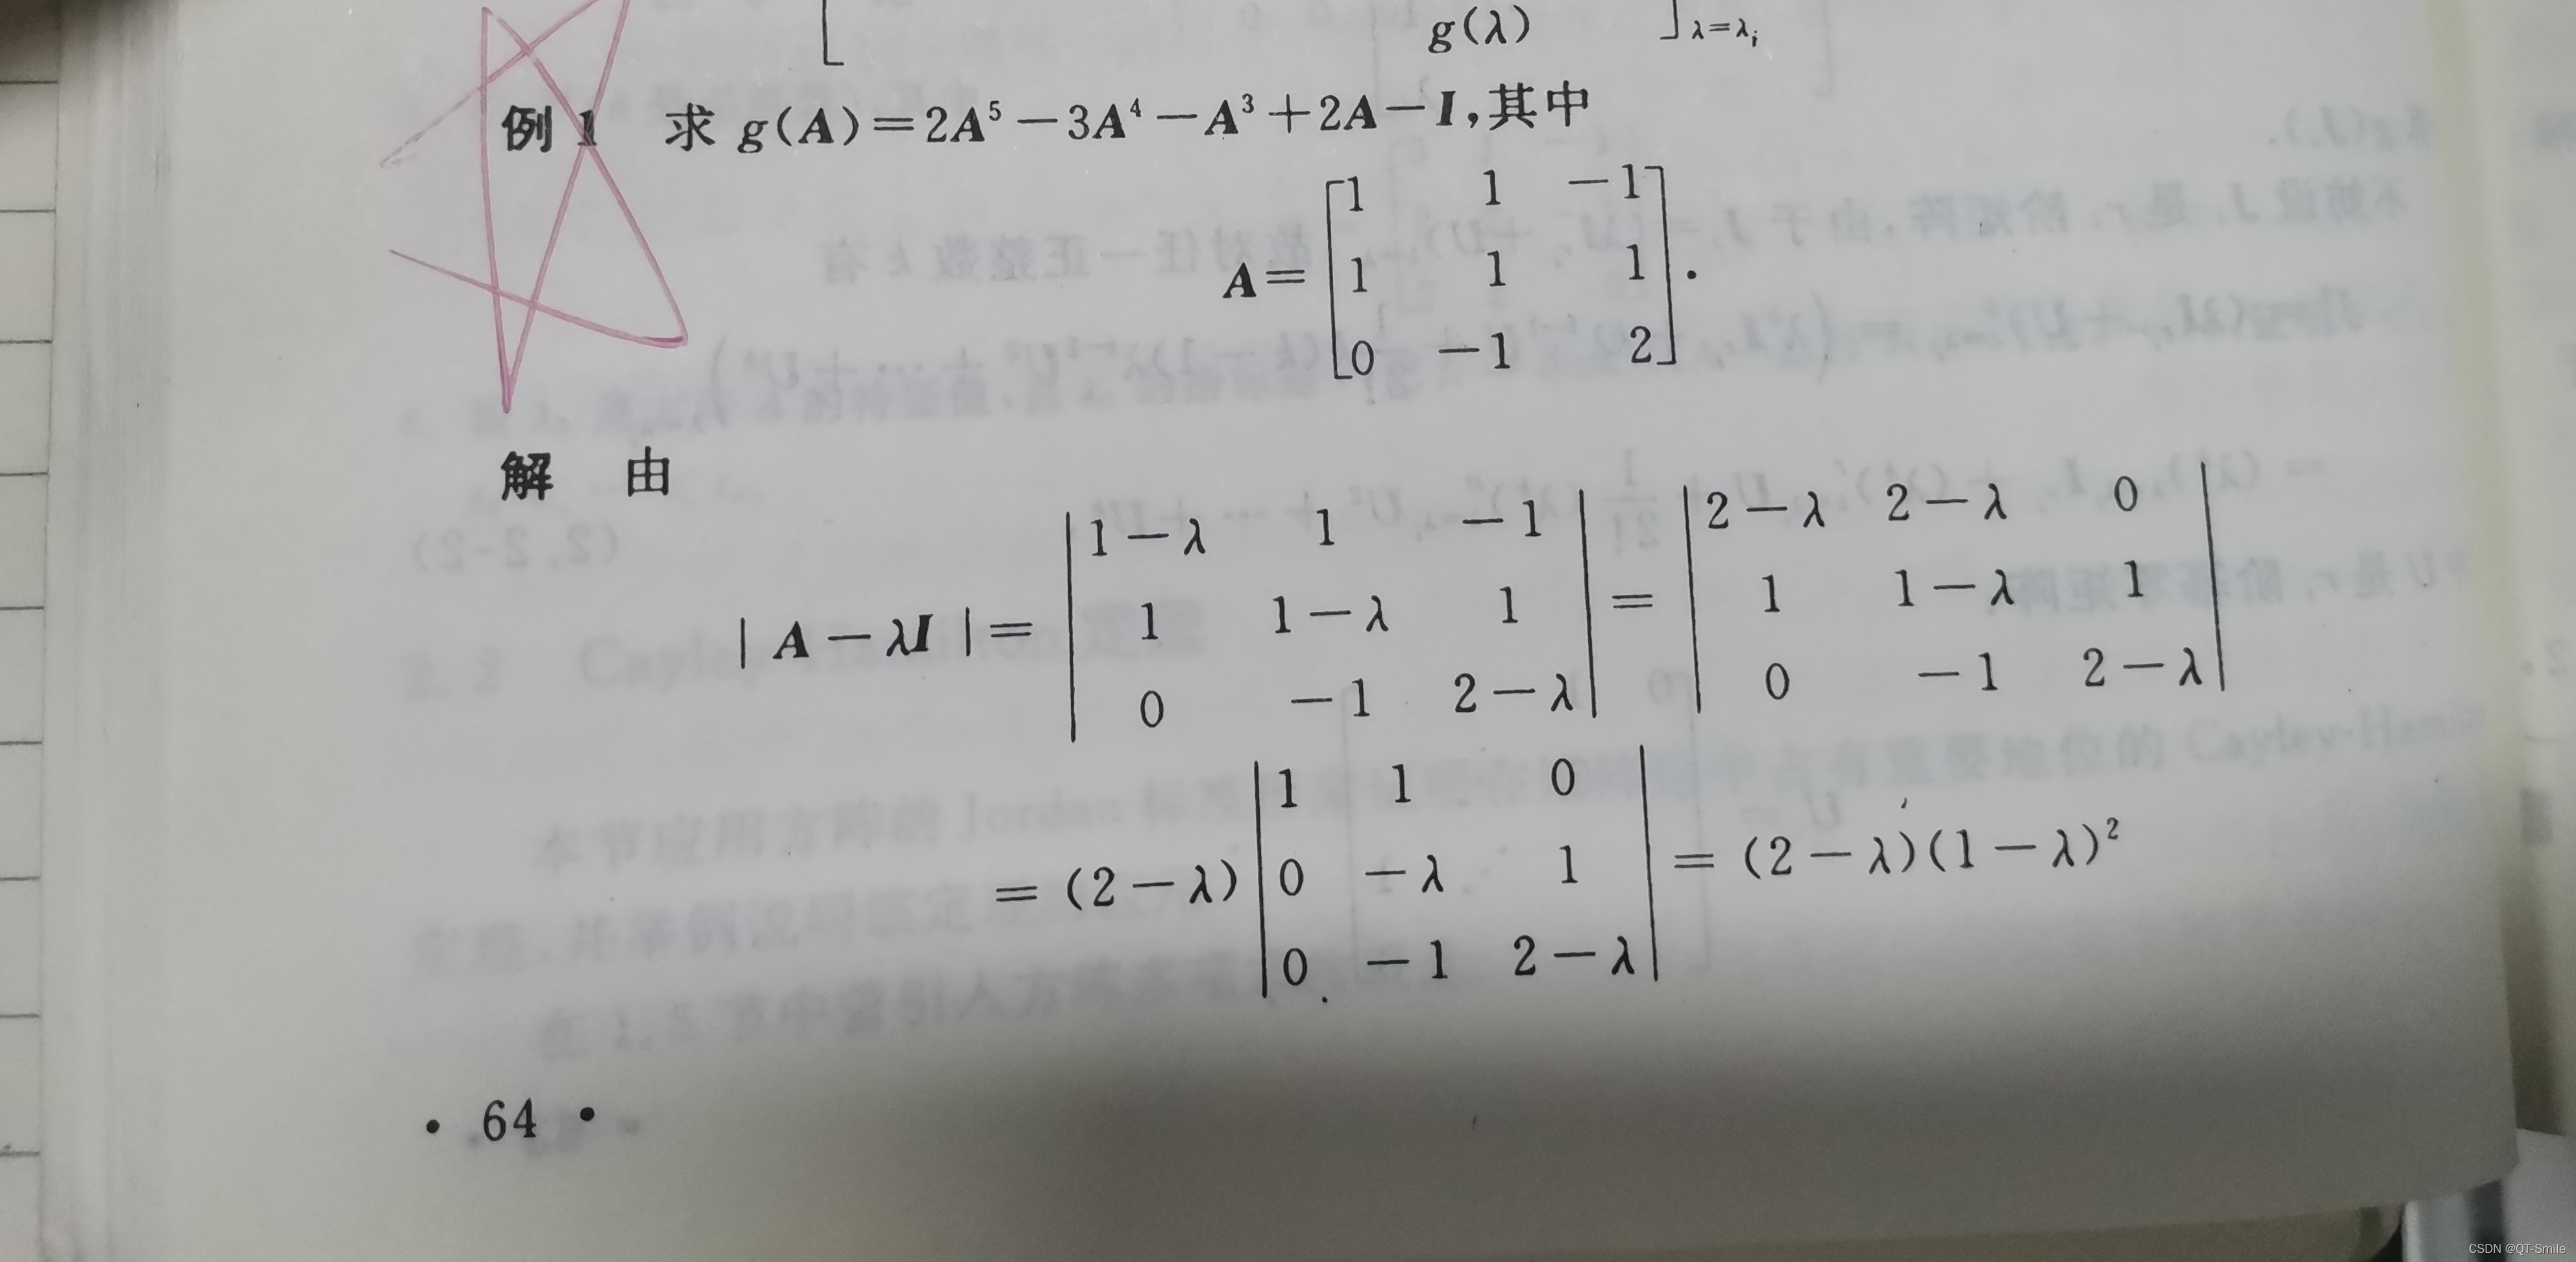 g(λ) ]λ=λᵢ
例 1 求 g(A)=2A⁵-3A⁴-A³+2A-I,其中
A=[1 1 -1
1 1 1
0 -1 2].
解 由
|A-λI|=|1-λ 1 -1
1 1-λ 1
0 -1 2-λ|=|2-λ 2-λ 0
1 1-λ 1
0 -1 2-λ|
=(2-λ)|1 1 0
0 -λ 1
0 -1 2-λ|=(2-λ)(1-λ)²
· 64 ·
CSDN @QT-Smile